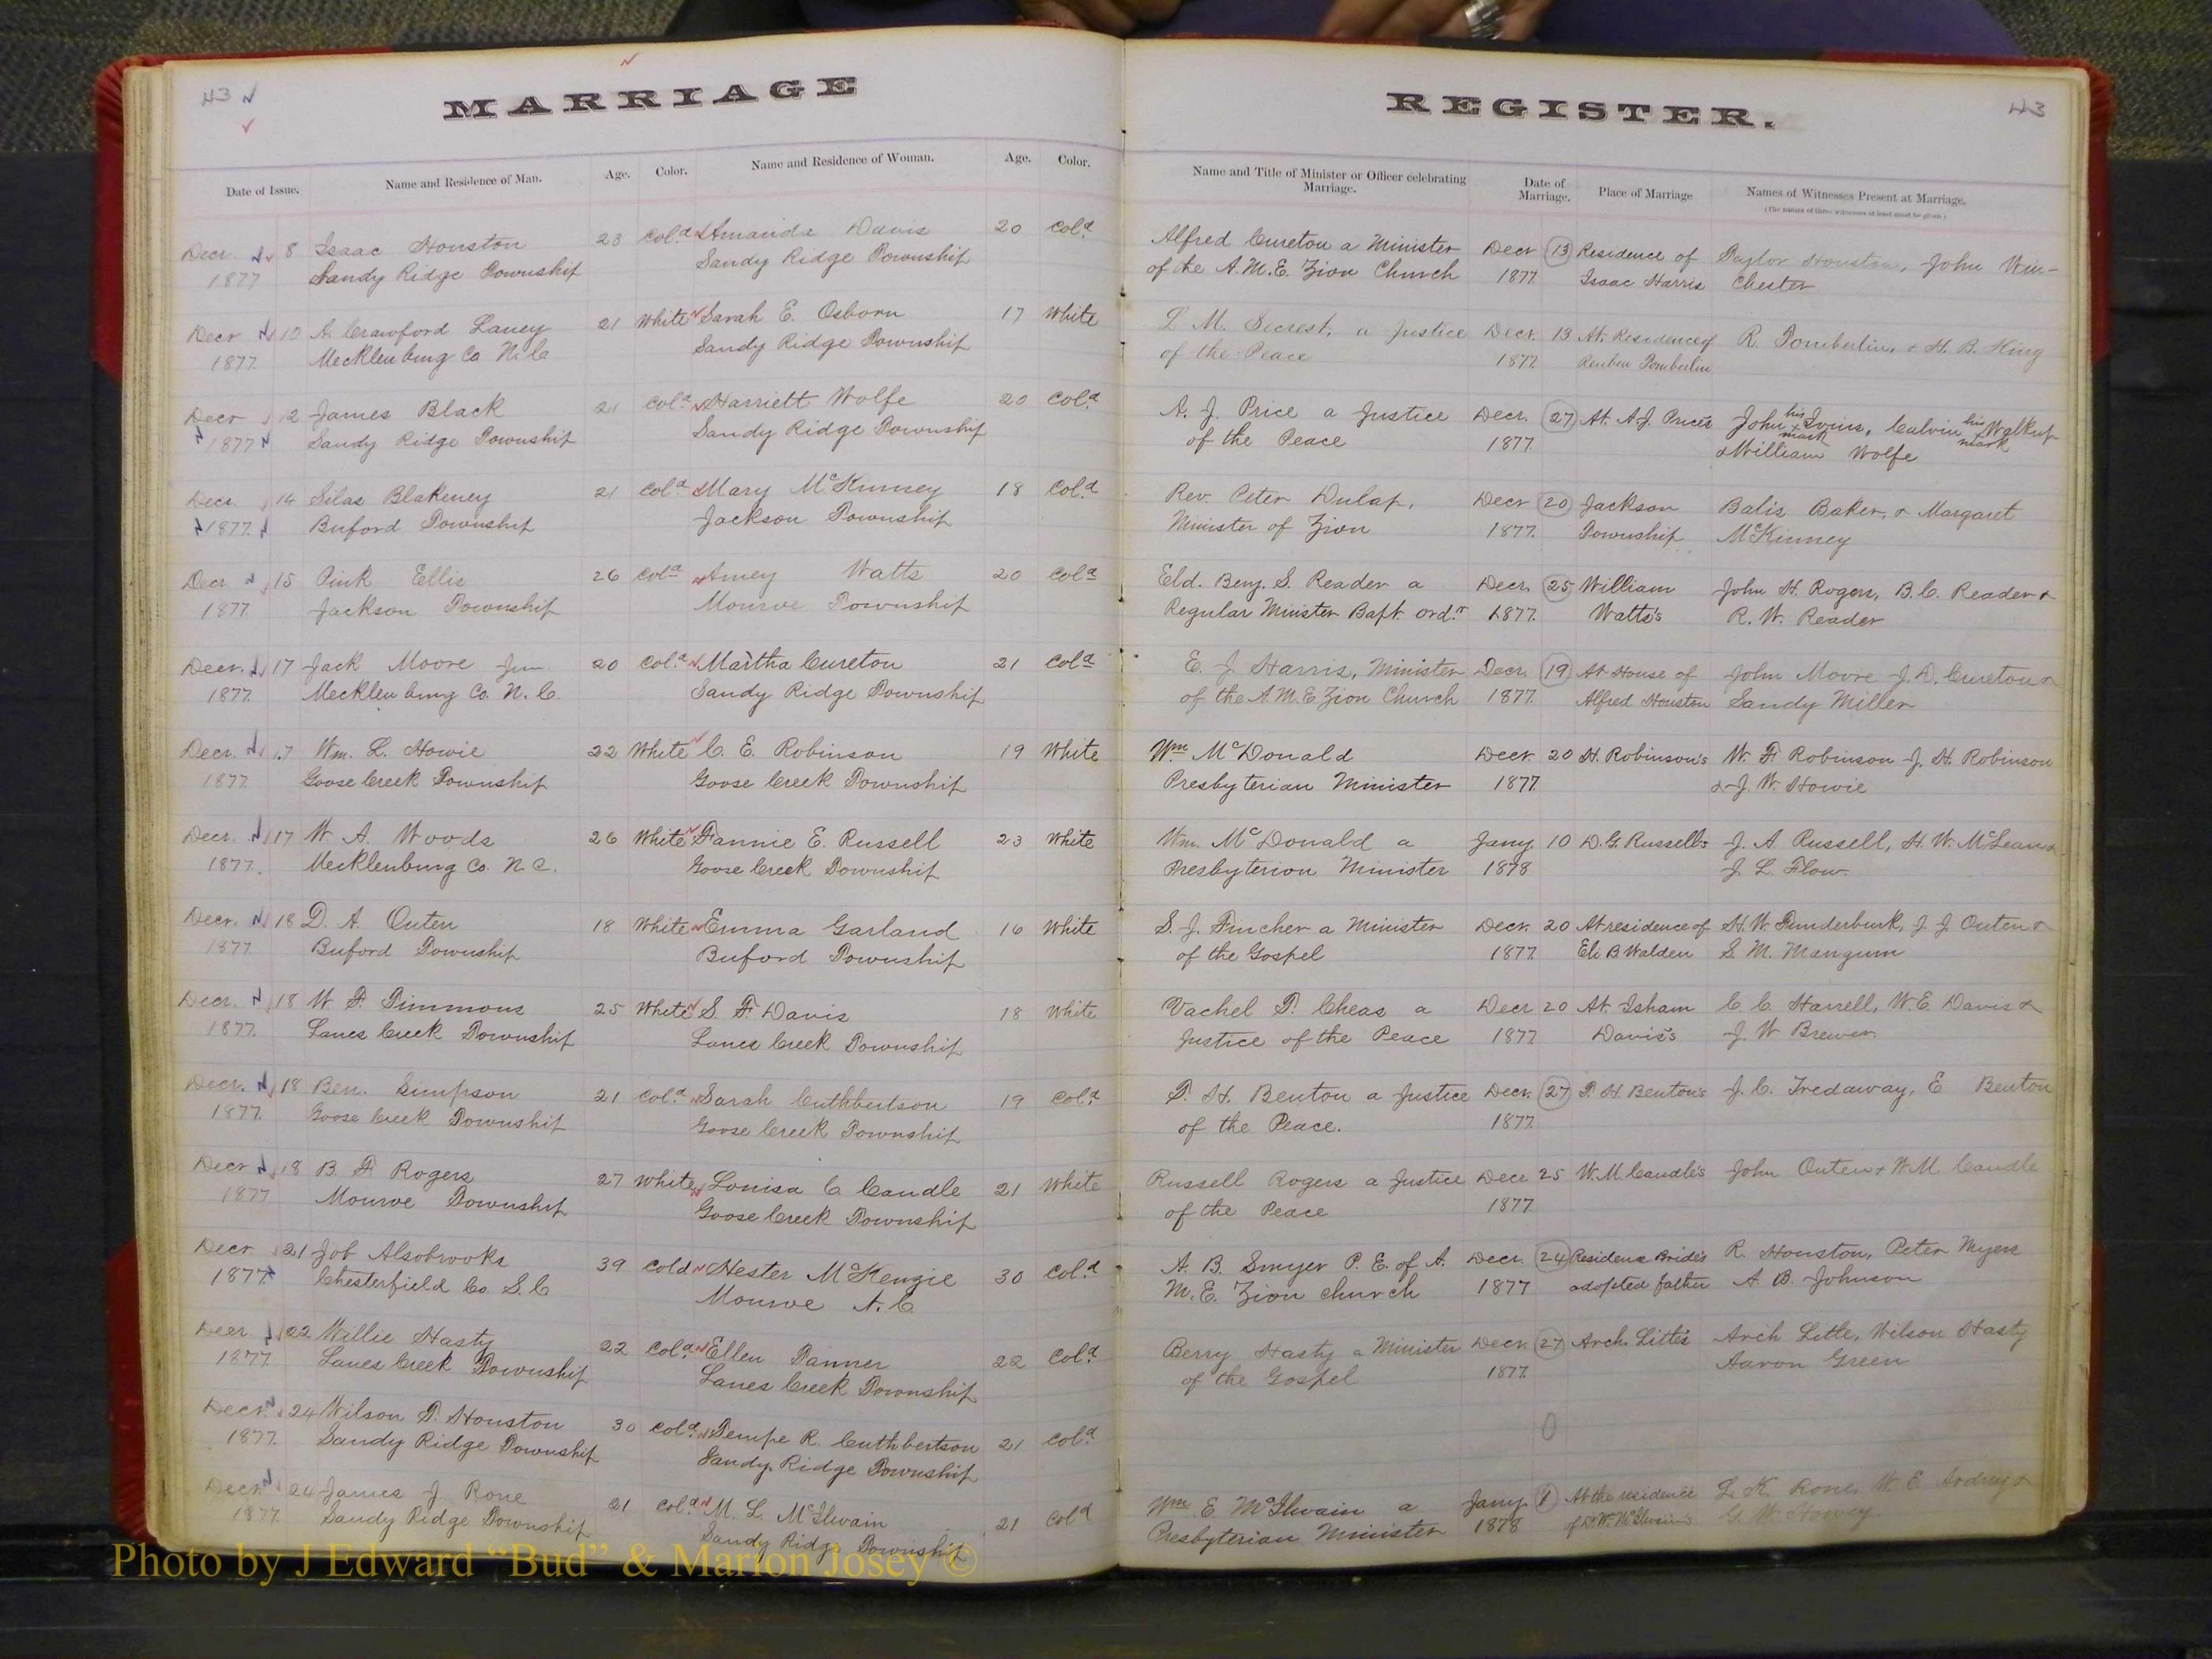 43
MARRIAGE
Date of Issue. Name and Residence of Man. Age. Color. Name and Residence of Woman. Age. Color.
Decr. 8 Isaac Houston 23 Cold Amanda Davis 20 Cold
1877 Sandy Ridge Township Sandy Ridge Township
Decr 10 A. Crawford Laney 21 White Sarah E. Osborn 17 White
1877. Mecklenburg Co N.C. Sandy Ridge Township
Decr 12 James Black 21 Cold Harriett Wolfe 20 Cold
1877 Sandy Ridge Township Sandy Ridge Township
Decr 14 Silas Blakeney 21 Cold Mary McKinney 18 Cold
1877. Buford Township Jackson Township
Decr. 15 Pink Ellis 26 Cold Amey Watts 20 Cold
1877. Jackson Township Monroe Township
Decr. 17 Jack Moore Jun 20 Cold Martha Cureton 21 Cold
1877. Mecklenburg Co. N.C. Sandy Ridge Township
Decr. 17 Wm. L. Howie 22 White C. E. Robinson 19 White
1877. Goose Creek Township Goose Creek Township
Decr. 17 W. A. Woods 26 White Fannie E. Russell 23 White
1877. Mecklenburg Co. N.C. Goose Creek Township
Decr. 18 D. A. Outen 18 White Emma Garland 16 White
1877 Buford Township Buford Township
Decr. 18 W. F. Timmons 25 White S. F. Davis 18 White
1877. Lanes Creek Township Lanes Creek Township
Decr. 18 Ben. Simpson 21 Cold Sarah Cuthbertson 19 Cold
1877. Goose Creek Township Goose Creek Township
Decr 18 B. F. Rogers 27 White Louisa C Caudle 21 White
1877 Monroe Township Goose Creek Township
Decr 21 Job Alsobrooks 39 Cold Hester McKenzie 30 Cold
1877. Chesterfield Co. S.C Monroe N.C.
Decr. 22 Willie Hasty 22 Cold Ellen Tanner 22 Cold
1877. Lanes Creek Township Lanes Creek Township
Decr. 24 Wilson T. Houston 30 Cold Tempe R. Cuthbertson 21 Cold
1877. Sandy Ridge Township Sandy Ridge Township
Decr. 24 James J. Rone 21 Cold M. L. McIlwain 21 Cold
1877. Sandy Ridge Township Sandy Ridge Township
REGISTER.
43
Name and Title of Minister or Officer celebrating Marriage. Date of Marriage. Place of Marriage Names of Witnesses Present at Marriage.
(The names of three witnesses at least must be given)
Alfred Cureton a Minister Decr 13 Residence of Taylor Houston, John Win-
of the A.M.E. Zion Church 1877. Isaac Harris chester
L M. Secrest, a Justice Decr. 13 At Residence of R. Tomberlin, + H. B. King
of the Peace 1877. Reuben Tomberlin
A. J. Price a Justice Decr. 27 At A.J. Prices John his mark Ivins, Calvin his mark Walkup
of the Peace 1877 & William Wolfe
Rev. Peter Dulap, Decr 20 Jackson Balis Baker, & Margaret
Minister of Zion 1877. Township McKinney
Eld. Benj. S. Reader a Decr. 25 William John H. Rogers, B.C. Reader &
Regular Minister Bapt. ordr 1877. Watts's R. W. Reader
E. J. Harris, Minister Decr. 19 At House of John Moore J. D. Cureton &
of the A.M.E Zion Church 1877. Alfred Houston Sandy Miller
Wm McDonald Decr. 20 H. Robinson's W. F. Robinson J. H. Robinson
Presbyterian Minister 1877. & J. W. Howie
Wm. McDonald a Jany 10 D.G. Russells J. A Russell, H. W. McLean &
Presbyterion Minister 1878 J. L. Flow.
S. J. Fincher a Minister Decr. 20 At residence of H. W. Funderburk, J. J Outen &
of the Gospel 1877. Eli B Walden S. M. Mangum
Vachel T. Cheas a Decr 20 At Isham C. C. Harrell, W. E Davis &
Justice of the Peace 1877 Davis's J. W Brewer
T. H. Benton a Justice Decr. 27 T. H. Benton's J. C. Tredaway, E Benton
of the Peace. 1877.
Russell Rogers a Justice Decr 25 W. M. Caudle's John Outen + W. M. Caudle
of the Peace 1877
A. B. Smyer P. E. of A. Decr. 24 Residence Bride's R. Houston, Peter Myers
M. E. Zion church 1877 adopted father A. B. Johnson
Berry Hasty a Minister Decr. 27 Arch. Little's Arch Little, Wilson Hasty
of the Gospel 1877. Aaron Green
0
Wm E. McIlwain a Jany. 1 At the residence L. K. Rone, W. E. Ardrey &
Presbyterian Minister 1878 of D.W. McIlwain's G. W. Howey
Photo by J Edward “Bud” & Marion Josey ©